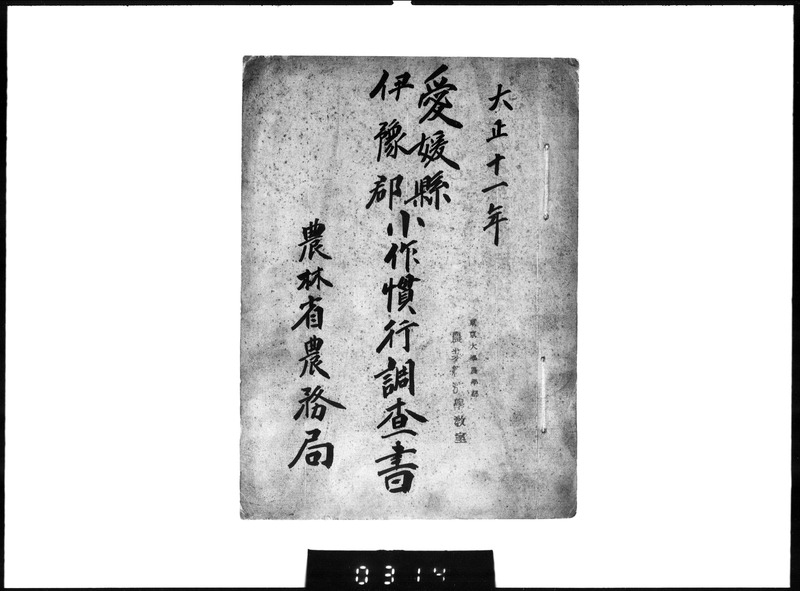 大正十一年
愛媛縣
伊豫郡
小作慣行調査書
東京大學農學部
學教室
農林省農務局
0314